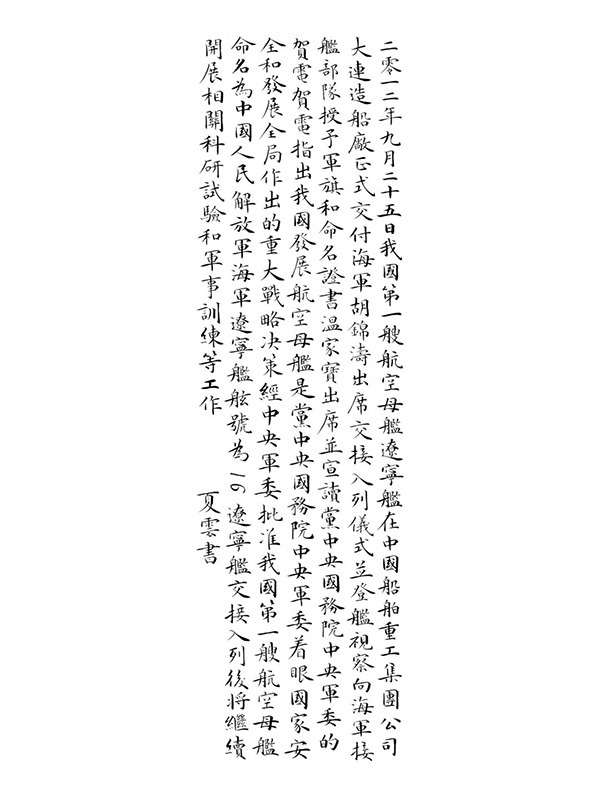 二零一二年九月二十五日我國第一艘航空母艦遼寧艦在中國船舶重工集團公司
大連造船廠正式交付海軍胡錦濤出席交接入列儀式並登艦視察向海軍接
艦部隊授予軍旗和命名證書溫家寶出席並宣讀黨中央國務院中央軍委的
賀電賀電指出我國發展航空母艦是黨中央國務院中央軍委着眼國家安
全和發展全局作出的重大戰略決策經中央軍委批准我國第一艘航空母艦
命名為中國人民解放軍海軍遼寧艦舷號為16遼寧艦交接入列後將繼續
開展相關科研試驗和軍事訓練等工作
夏雲書